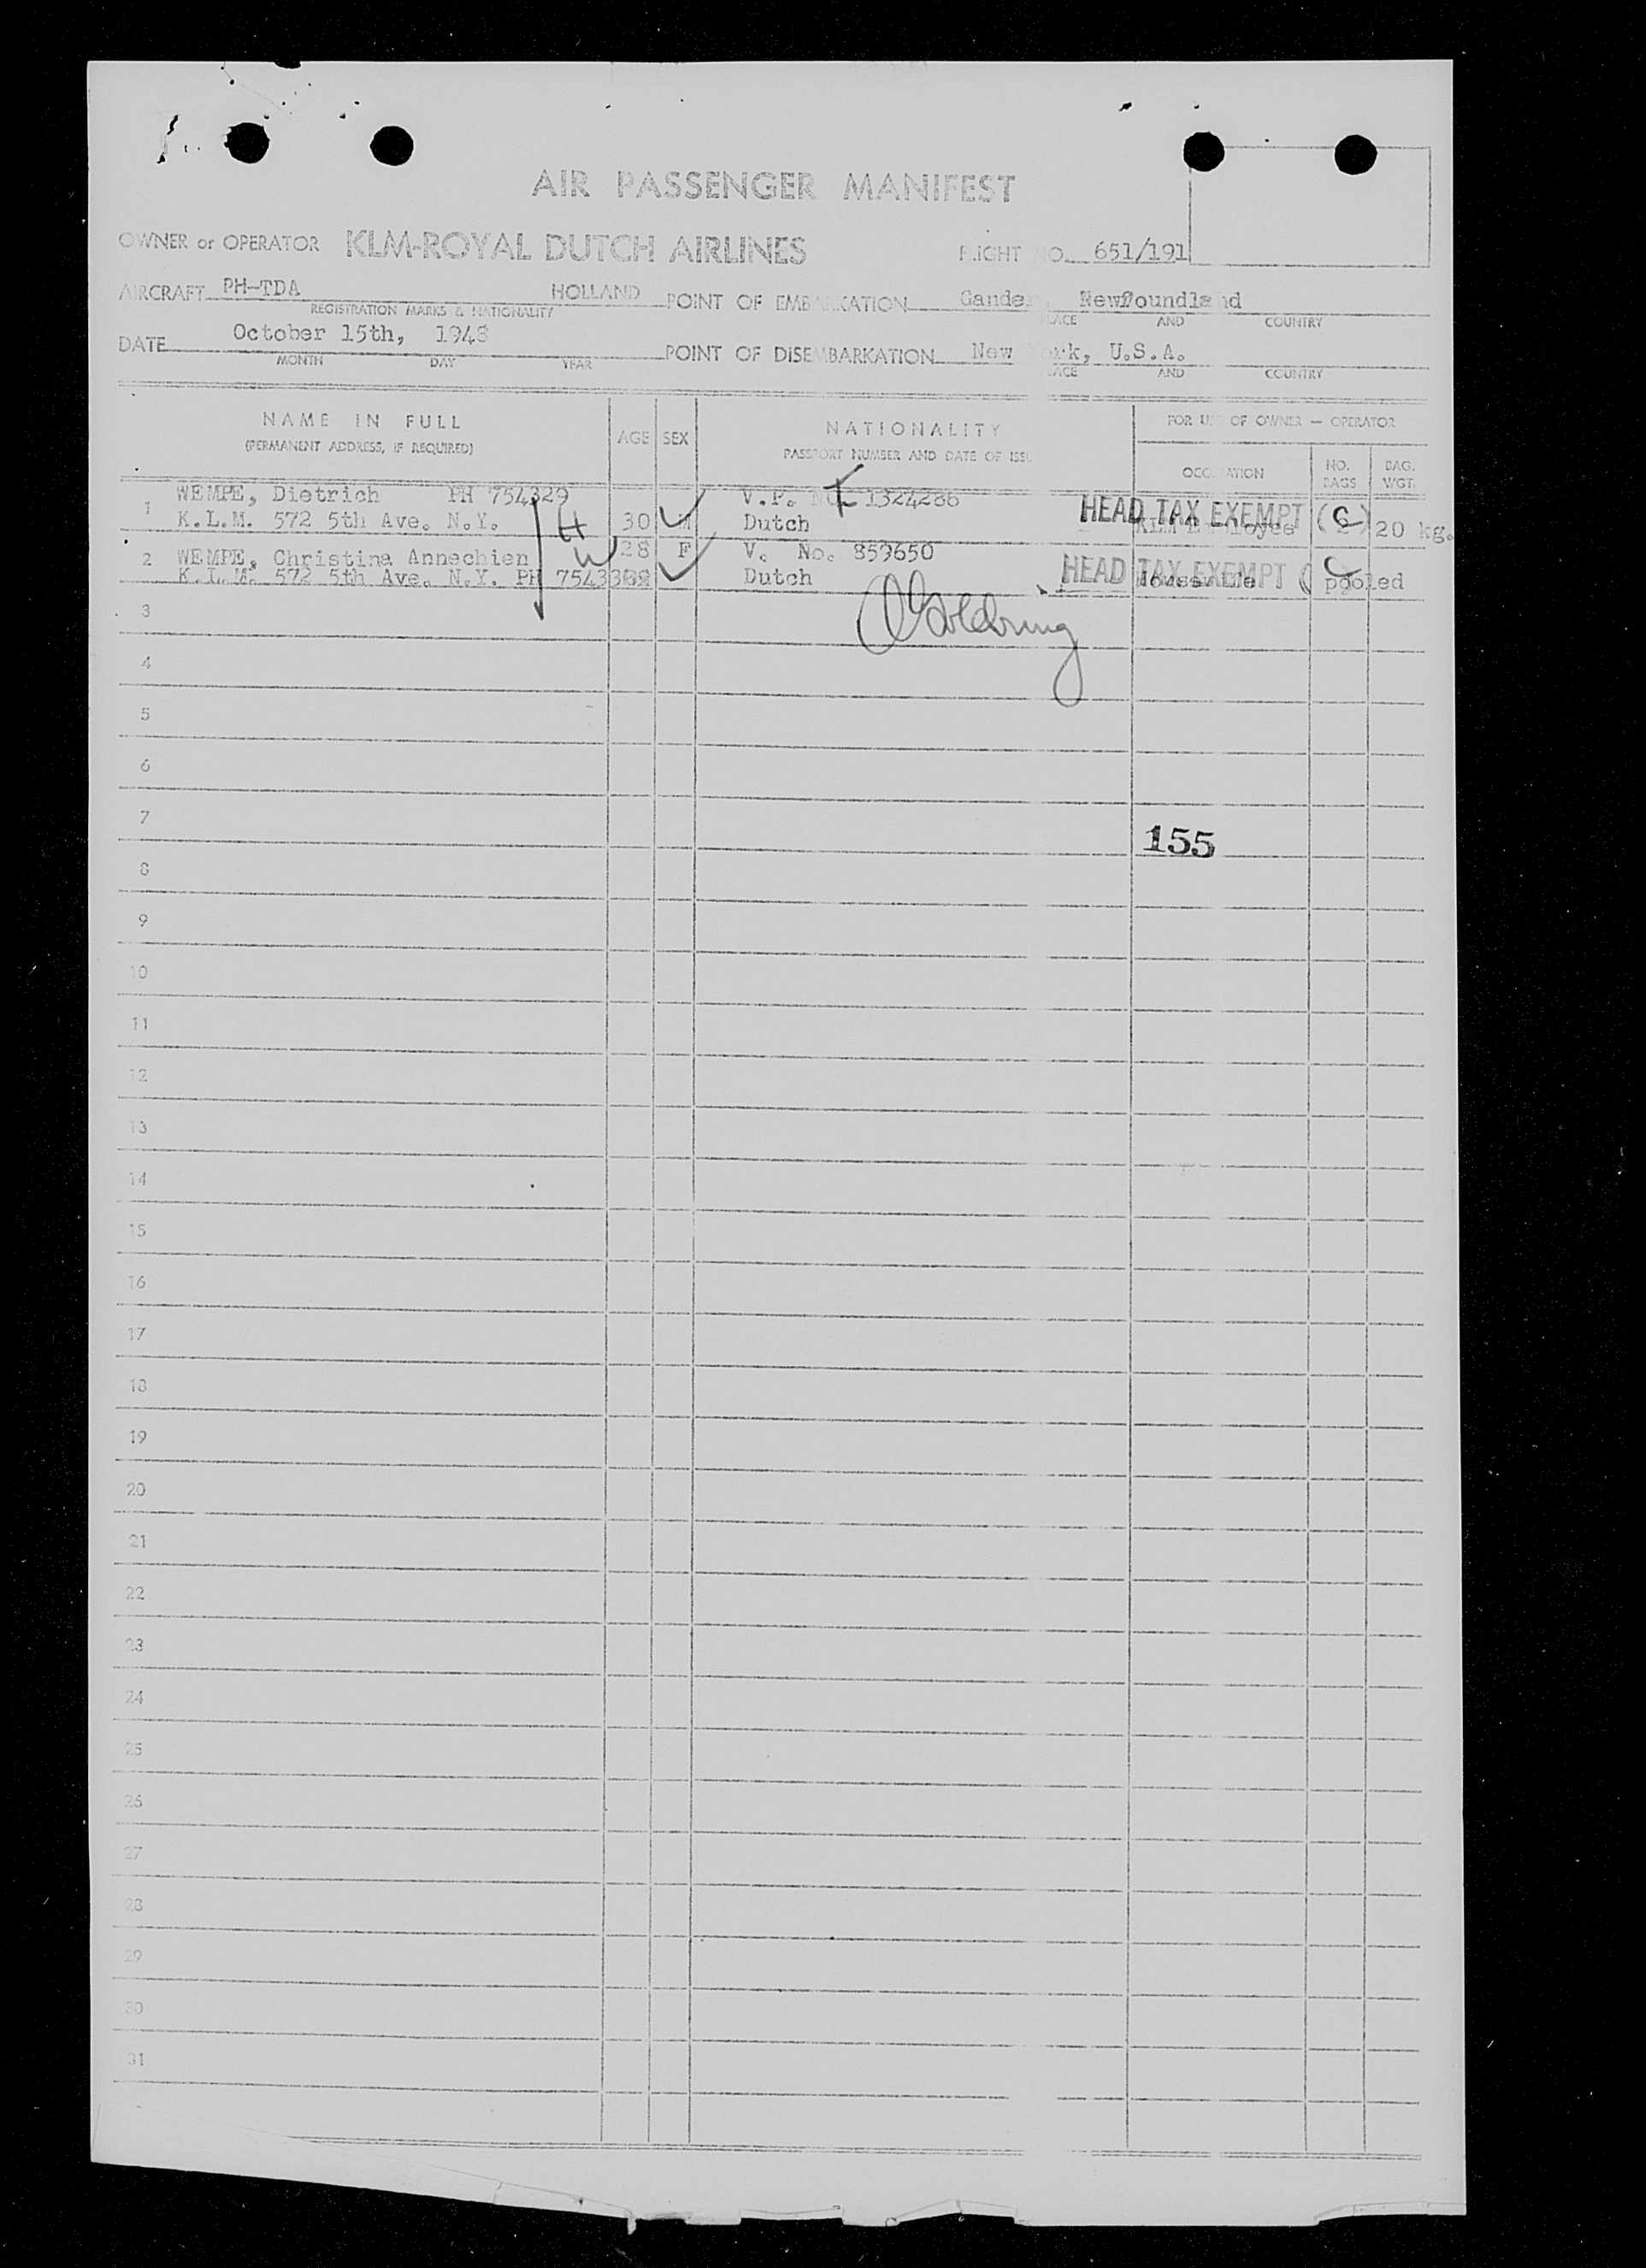 AIR PASSENGER MANIFEST
OWNER or OPERATOR KLM-ROYAL DUTCH AIRLINES FLIGHT NO. 651/191
AIRCRAFT PH-TDA HOLLAND POINT OF EMBARKATION Gander Newfoundland
REGISTRATION MARKS & NATIONALITY PLACE AND COUNTRY
DATE October 15th, 1948 POINT OF DISEMBARKATION New York, U.S.A.
MONTH DAY YEAR PLACE AND COUNTRY
NAME IN FULL AGE SEX NATIONALITY FOR USE OF OWNER — OPERATOR
(PERMANENT ADDRESS, IF REQUIRED) PASSPORT NUMBER AND DATE OF ISSUE OCCUPATION NO. BAGS BAG. WGT.
1 WEMPE, Dietrich PH 754329 V.P. No. 1324286
K.L.M. 572 5th Ave. N.Y. 30 M Dutch HEAD TAX EXEMPT (C) KLM Employee 20 kg.
2 WEMPE, Christina Annechien 28 F V. No. 859650
K.L.M. 572 5th Ave. N.Y. PH Dutch HEAD TAX EXEMPT ( Housewife pooled
3
4
5
6
7
155
8
9
10
11
12
13
14
15
16
17
18
19
20
21
22
23
24
25
26
27
28
29
30
31